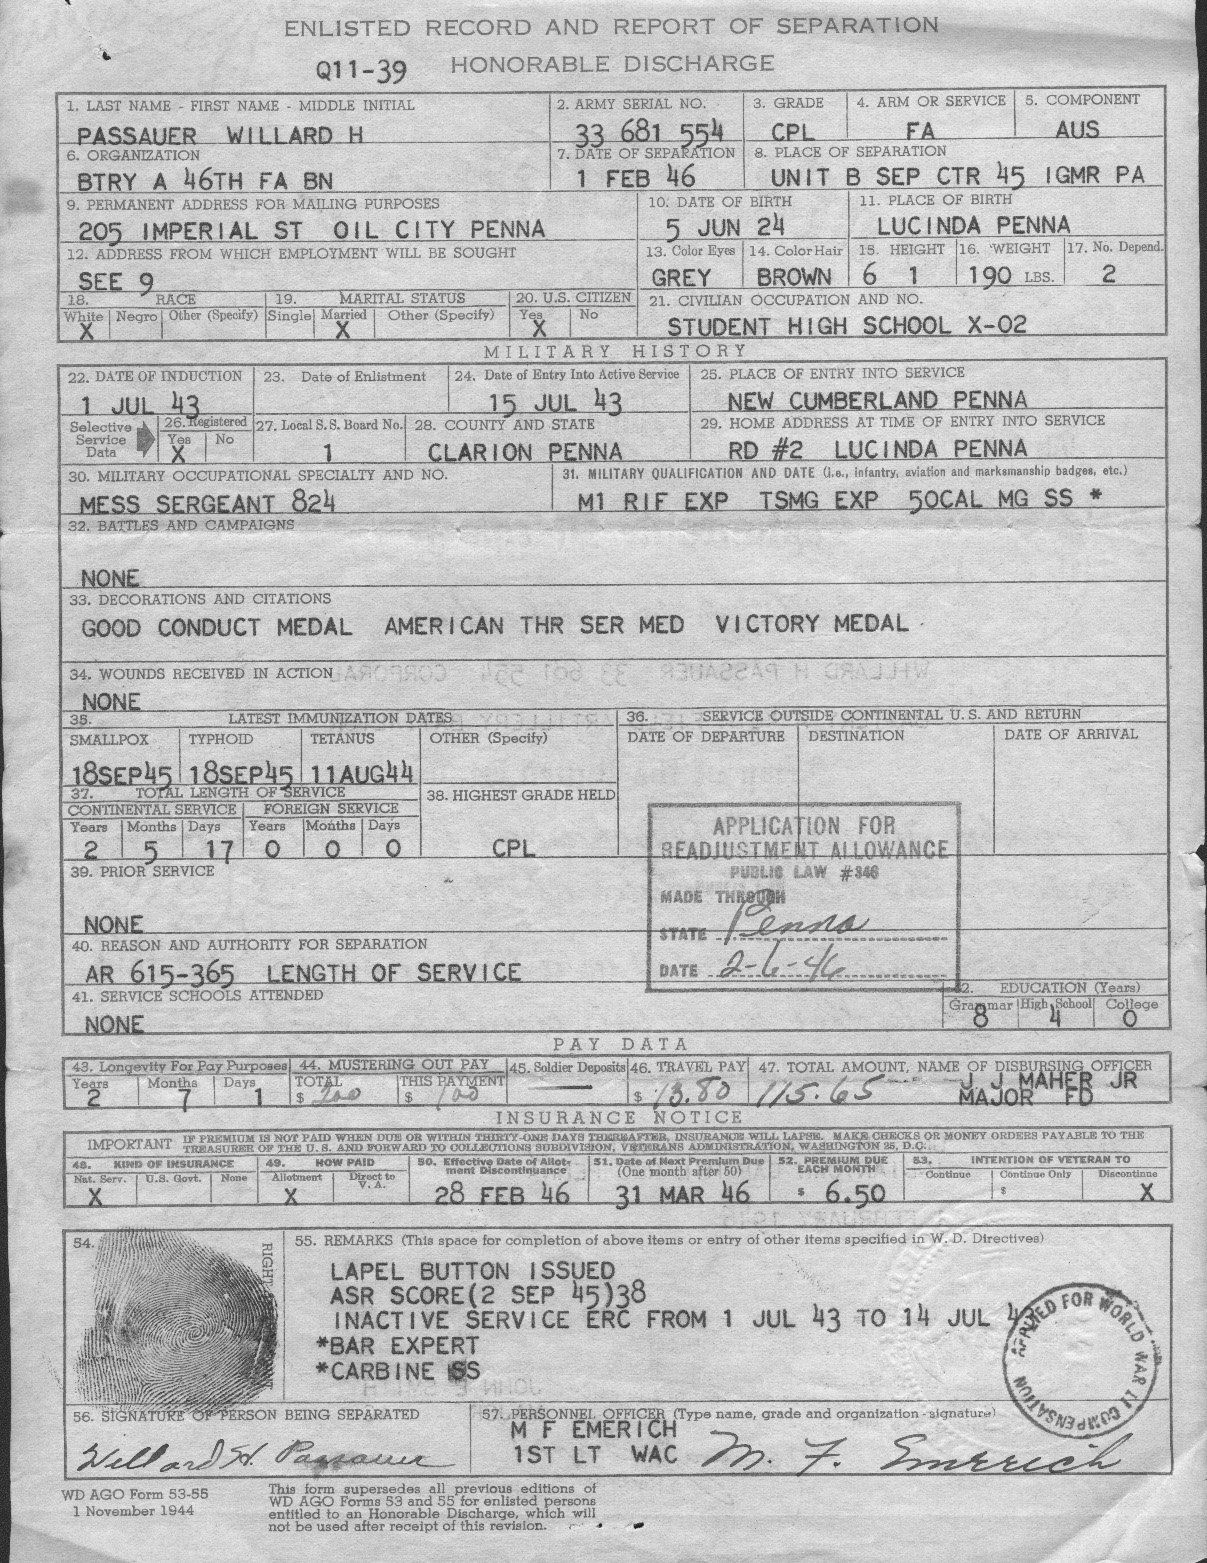 ENLISTED RECORD AND REPORT OF SEPARATION
Q11-39 HONORABLE DISCHARGE
1. LAST NAME - FIRST NAME - MIDDLE INITIAL 2. ARMY SERIAL NO. 3. GRADE 4. ARM OR SERVICE 5. COMPONENT
PASSAUER WILLARD H 33 681 554 CPL FA AUS
6. ORGANIZATION 7. DATE OF SEPARATION 8. PLACE OF SEPARATION
BTRY A 46TH FA BN 1 FEB 46 UNIT B SEP CTR 45 IGMR PA
9. PERMANENT ADDRESS FOR MAILING PURPOSES 10. DATE OF BIRTH 11. PLACE OF BIRTH
205 IMPERIAL ST OIL CITY PENNA 5 JUN 24 LUCINDA PENNA
12. ADDRESS FROM WHICH EMPLOYMENT WILL BE SOUGHT 13. Color Eyes 14. Color Hair 15. HEIGHT 16. WEIGHT 17. No. Depend.
SEE 9 GREY BROWN 6 1 190 LBS. 2
18. RACE 19. MARITAL STATUS 20. U.S. CITIZEN 21. CIVILIAN OCCUPATION AND NO.
White Negro Other (Specify) Single Married Other (Specify) Yes No
X X X STUDENT HIGH SCHOOL X-02
MILITARY HISTORY
22. DATE OF INDUCTION 23. Date of Enlistment 24. Date of Entry Into Active Service 25. PLACE OF ENTRY INTO SERVICE
1 JUL 43 15 JUL 43 NEW CUMBERLAND PENNA
Selective Service Data 26. Registered 27. Local S.S. Board No. 28. COUNTY AND STATE 29. HOME ADDRESS AT TIME OF ENTRY INTO SERVICE
Yes No
X 1 CLARION PENNA RD #2 LUCINDA PENNA
30. MILITARY OCCUPATIONAL SPECIALTY AND NO. 31. MILITARY QUALIFICATION AND DATE (i.e., infantry, aviation and marksmanship badges, etc.)
MESS SERGEANT 824 M1 RIF EXP TSMG EXP 50CAL MG SS *
32. BATTLES AND CAMPAIGNS
NONE
33. DECORATIONS AND CITATIONS
GOOD CONDUCT MEDAL AMERICAN THR SER MED VICTORY MEDAL
34. WOUNDS RECEIVED IN ACTION
NONE
35. LATEST IMMUNIZATION DATES 36. SERVICE OUTSIDE CONTINENTAL U.S. AND RETURN
SMALLPOX TYPHOID TETANUS OTHER (Specify) DATE OF DEPARTURE DESTINATION DATE OF ARRIVAL
18SEP45 18SEP45 11AUG44
37. TOTAL LENGTH OF SERVICE 38. HIGHEST GRADE HELD
CONTINENTAL SERVICE FOREIGN SERVICE
Years Months Days Years Months Days
2 5 17 0 0 0 CPL
APPLICATION FOR
READJUSTMENT ALLOWANCE
PUBLIC LAW #346
MADE THROUGH
STATE Penna
DATE 2-6-46
39. PRIOR SERVICE
NONE
40. REASON AND AUTHORITY FOR SEPARATION
AR 615-365 LENGTH OF SERVICE
41. SERVICE SCHOOLS ATTENDED 42. EDUCATION (Years)
Grammar High School College
NONE 8 4 0
PAY DATA
43. Longevity For Pay Purposes 44. MUSTERING OUT PAY 45. Soldier Deposits 46. TRAVEL PAY 47. TOTAL AMOUNT, NAME OF DISBURSING OFFICER
Years Months Days TOTAL THIS PAYMENT J J MAHER JR
2 7 1 $ 200 $ 100 $ 13.80 115.65 MAJOR FD
INSURANCE NOTICE
IMPORTANT IF PREMIUM IS NOT PAID WHEN DUE OR WITHIN THIRTY-ONE DAYS THEREAFTER, INSURANCE WILL LAPSE. MAKE CHECKS OR MONEY ORDERS PAYABLE TO THE
TREASURER OF THE U. S. AND FORWARD TO COLLECTIONS SUBDIVISION, VETERANS ADMINISTRATION, WASHINGTON 25, D.C.
48. KIND OF INSURANCE 49. HOW PAID 50. Effective Date of Allotment Discontinuance 51. Date of Next Premium Due (One month after 50) 52. PREMIUM DUE EACH MONTH 53. INTENTION OF VETERAN TO
Nat. Serv. U.S. Govt. None Allotment Direct to V. A. Continue Continue Only Discontinue
X X 28 FEB 46 31 MAR 46 $ 6.50 $ X
54. RIGHT 55. REMARKS (This space for completion of above items or entry of other items specified in W. D. Directives)
LAPEL BUTTON ISSUED
ASR SCORE(2 SEP 45)38
INACTIVE SERVICE ERC FROM 1 JUL 43 TO 14 JUL 43
*BAR EXPERT
*CARBINE SS
APPLIED FOR WORLD WAR II COMPENSATION
56. SIGNATURE OF PERSON BEING SEPARATED 57. PERSONNEL OFFICER (Type name, grade and organization - signature)
M F EMERICH
1ST LT WAC
Willard H. Passauer M. F. Emerich
WD AGO Form 53-55
1 November 1944
This form supersedes all previous editions of
WD AGO Forms 53 and 55 for enlisted persons
entitled to an Honorable Discharge, which will
not be used after receipt of this revision.